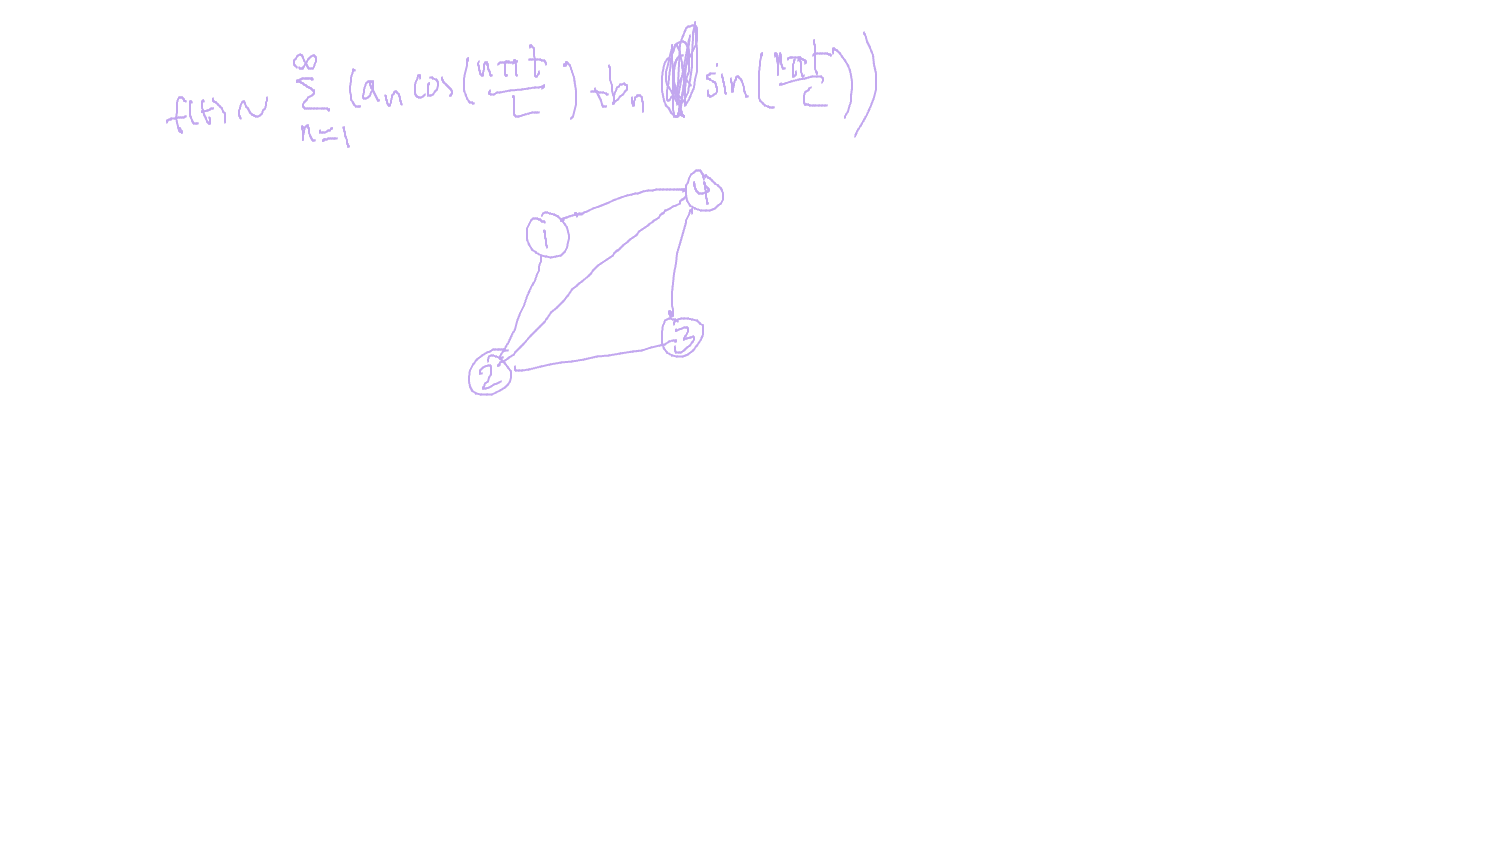 f(t) ~ ∞ Σ n=1 (aₙ cos(nπt/L) + bₙ sin(nπt/L))
4
1
3
2